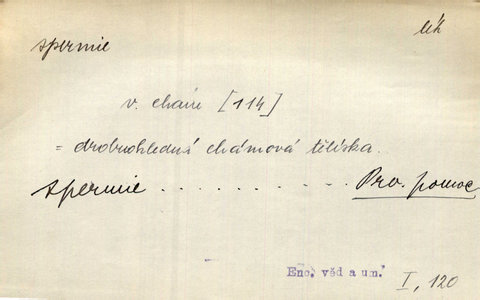 spermie
lék
v. chám [114]
= drobnohledná chámová tělíska.
spermie . . . . . . . . . . . Prv. pomoc
Enc. věd a um.
I, 120